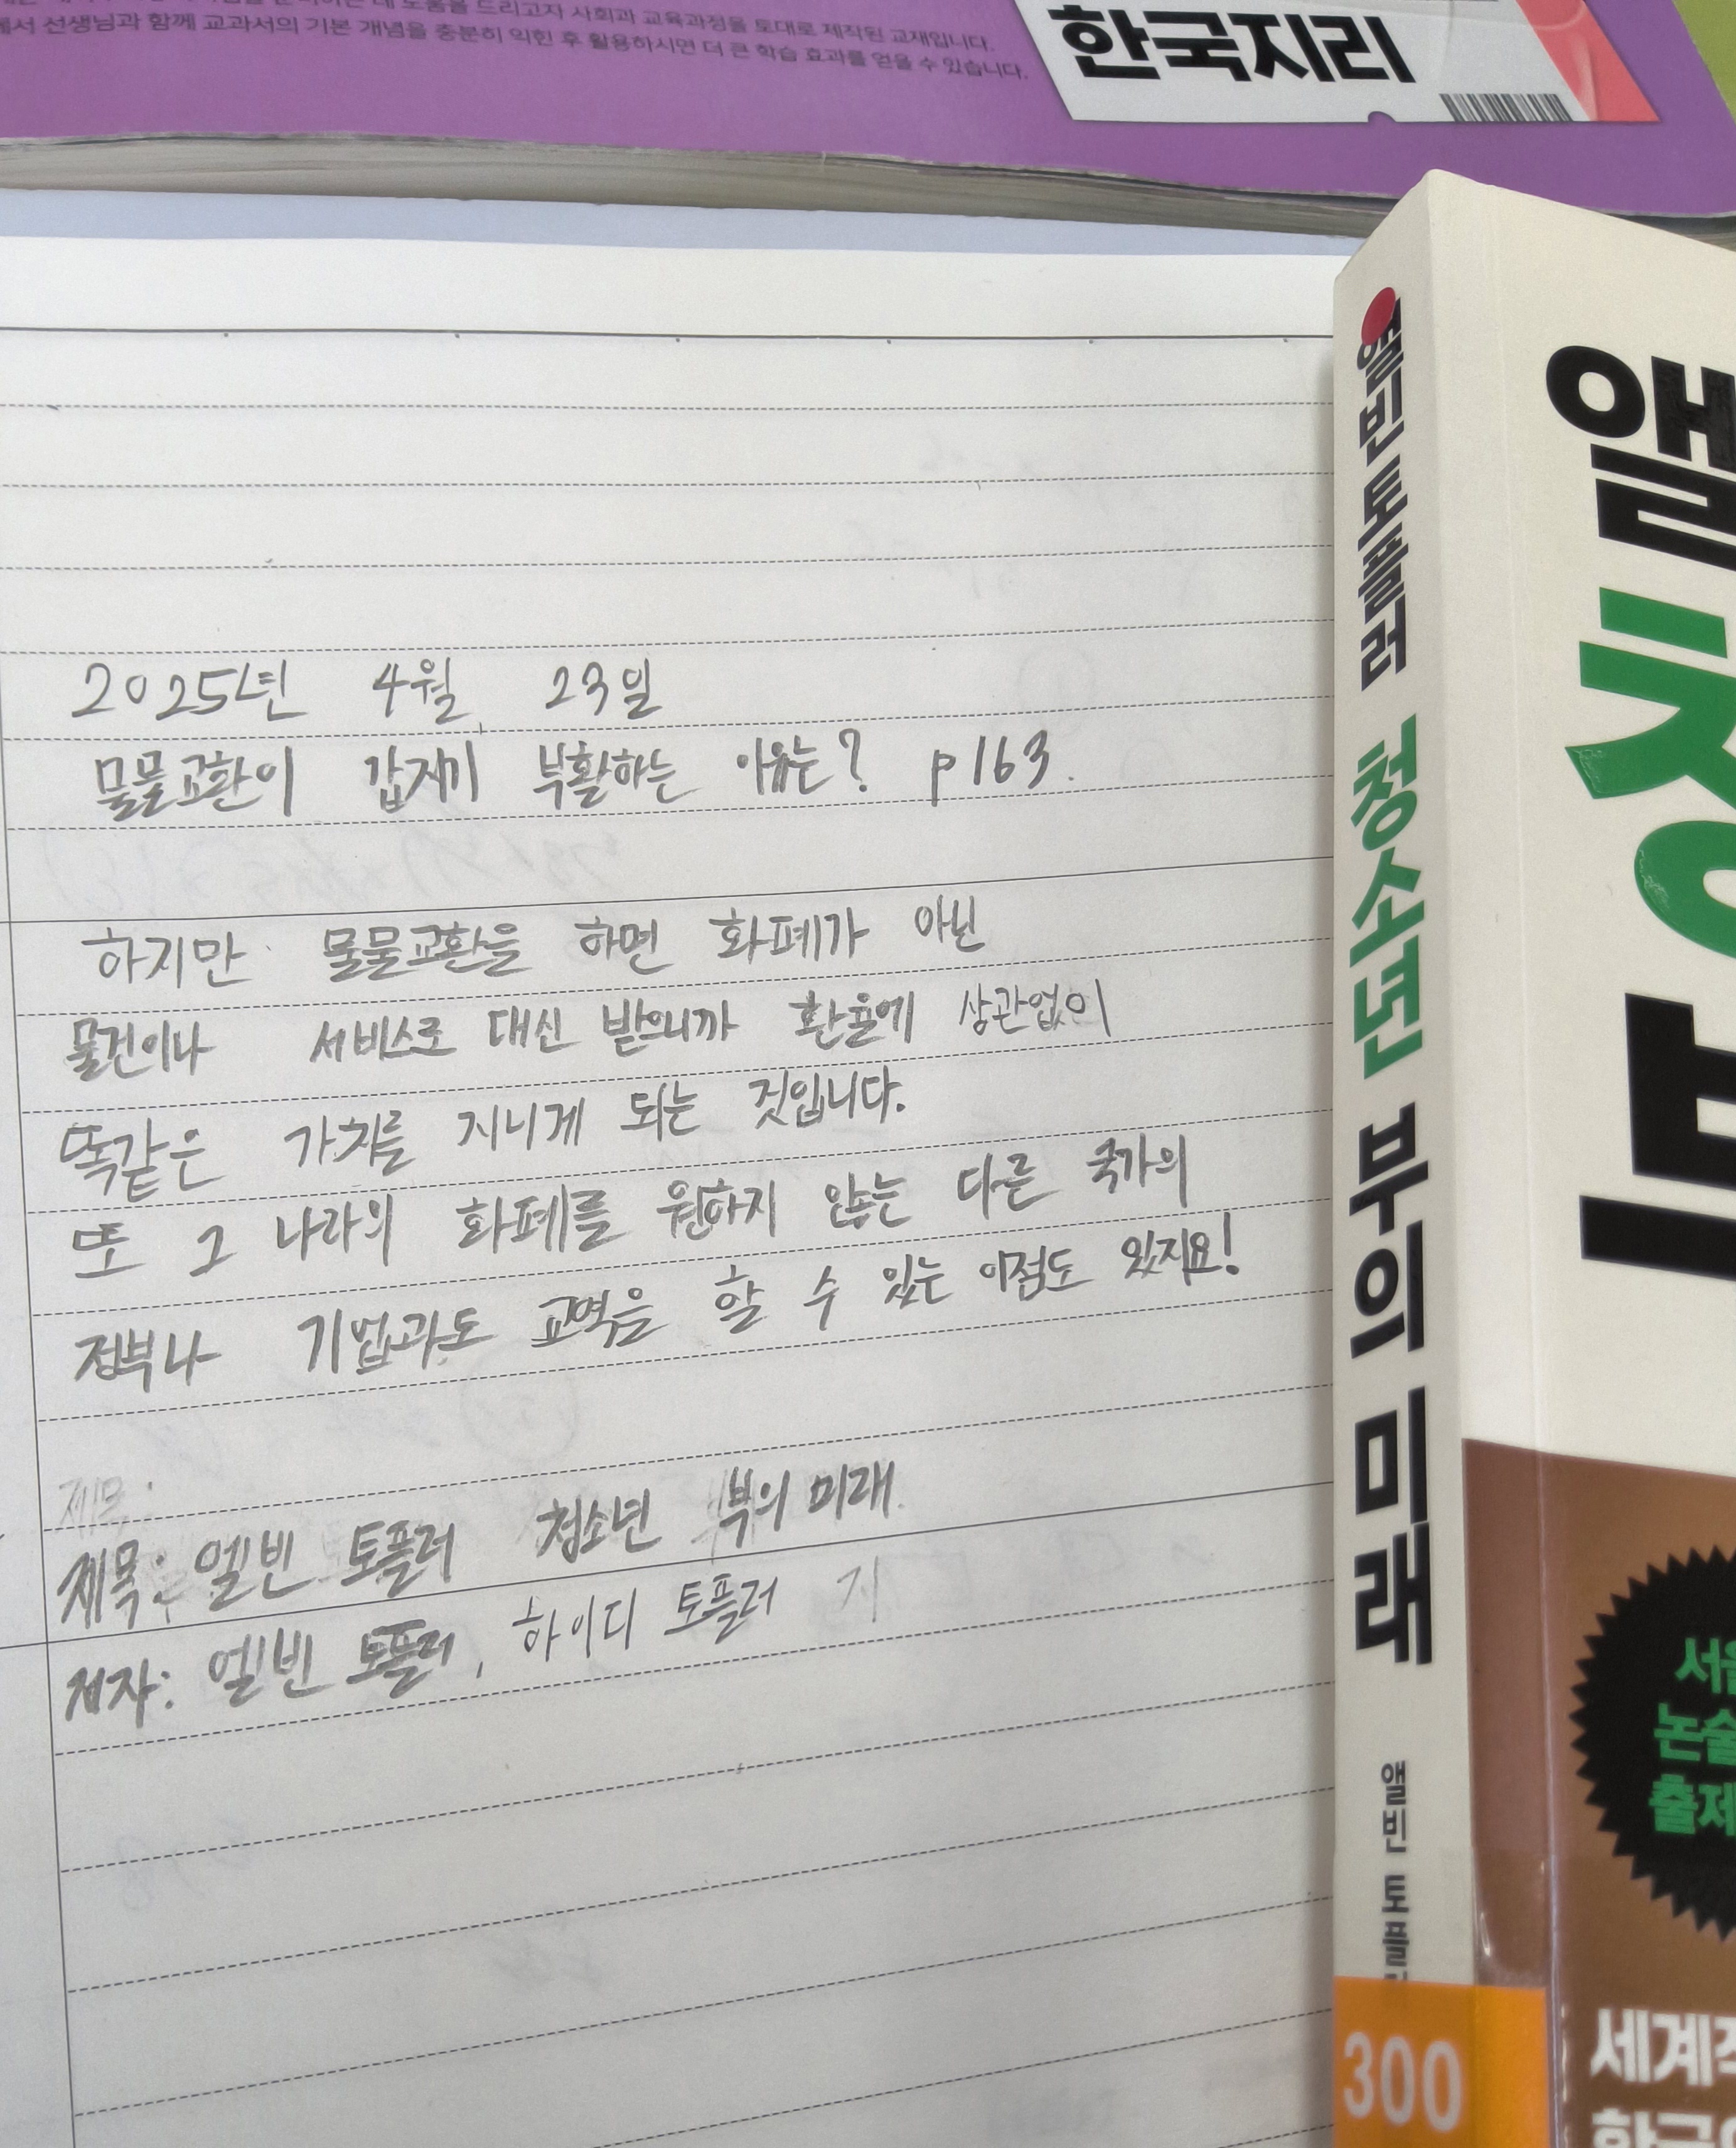 사회과 교육과정을 토대로 제작된 교재입니다.
선생님과 함께 교과서의 기본 개념을 충분히 익힌 후 활용하시면 더 큰 학습 효과를 얻을 수 있습니다.
한국지리
2025년 4월 23일
물물교환이 갑자기 부활하는 이유는? p163.
하지만 물물교환을 하면 화폐가 아닌
물건이나 서비스로 대신 받으니까 환율에 상관없이
똑같은 가치를 지니게 되는 것입니다.
또 그 나라의 화폐를 원하지 않는 다른 국가의
정부나 기업과도 교역을 할 수 있는 이점도 있지요!
제목:
제목: 엘빈 토플러 청소년 부의 미래
저자: 엘빈 토플러, 하이디 토플러 지
앨빈 토플러 청소년 부의 미래
앨빈 토플러
300
앨
청
부
서울
논술
출제
세계적
한국